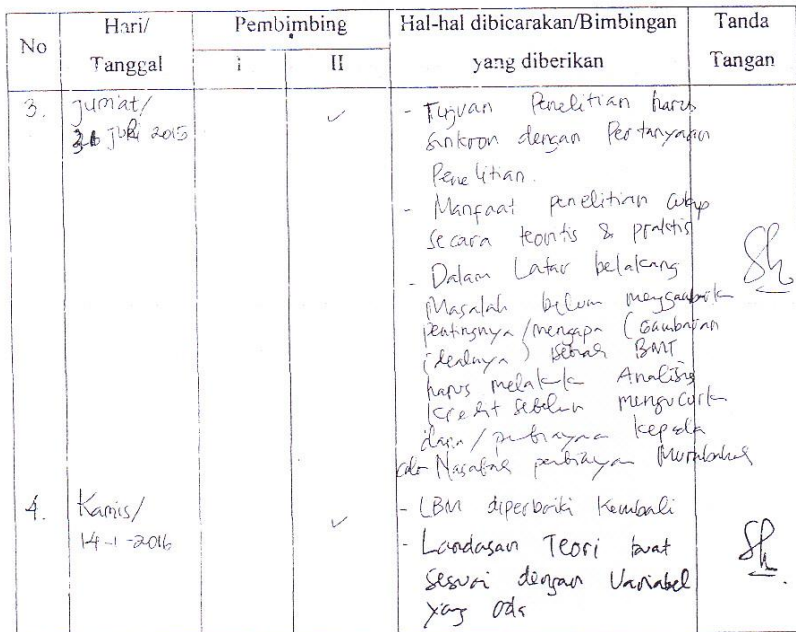 No Hari/ Pembimbing Hal-hal dibicarakan/Bimbingan Tanda
Tanggal I II yang diberikan Tangan
3. Jum'at/ ✓ - Tujuan Penelitian harus
31 Juli 2015 sinkron dengan Pertanyaan
Penelitian.
- Manfaat penelitian cukup
secara teoritis & praktis
- Dalam Latar belakang
Masalah belum menggambarkan
pentingnya/mengapa (Gambaran
idealnya) sebuah BMT
harus melakukan Analisis
Kredit sebelum mengucurkan
dana/pembiayaan kepada
calon Nasabah pembiayaan Murabahah
4. Kamis/ ✓ - LBM diperbaiki Kembali
14-1-2016 - Landasan Teori buat
sesuai dengan Variabel
yang ada